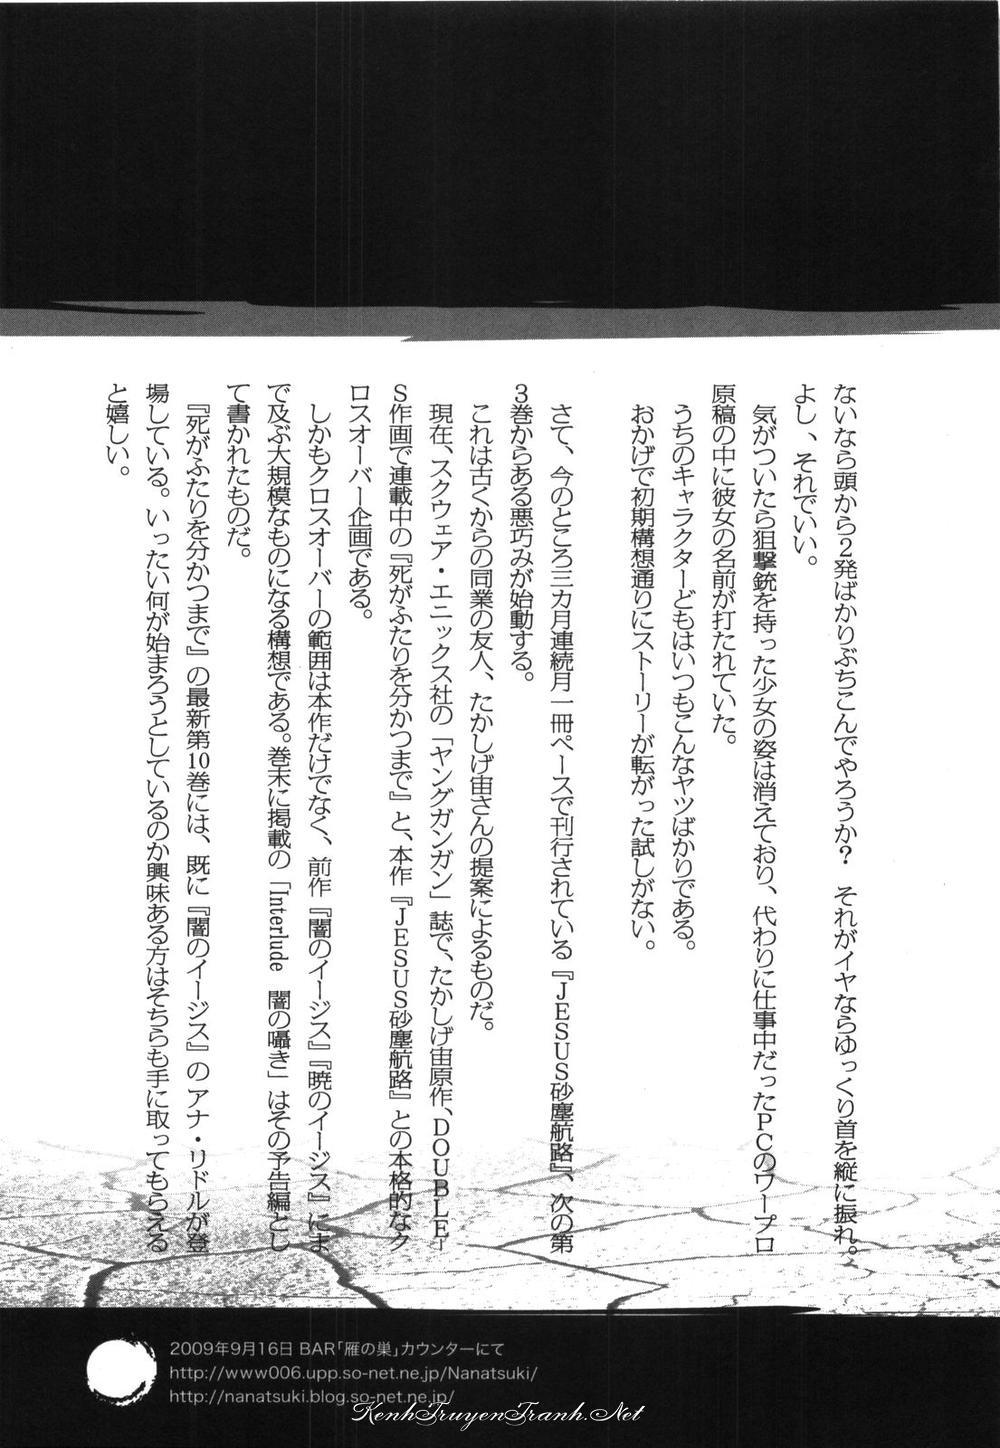 ないなら頭から2発ばかりぶちこんでやろうか？　それがイヤならゆっくり首を縦に振れ。
よし、それでいい。
気がついたら狙撃銃を持った少女の姿は消えており、代わりに仕事中だったPCのワープロ
原稿の中に彼女の名前が打たれていた。
うちのキャラクターどもはいつもこんなヤツばかりである。
おかげで初期構想通りにストーリーが転がった試しがない。
さて、今のところ三カ月連続月一冊ペースで刊行されている『JESUS砂塵航路』、次の第
3巻からある悪巧みが始動する。
これは古くからの同業の友人、たかしげ宙さんの提案によるものだ。
現在、スクウェア・エニックス社の「ヤングガンガン」誌で、たかしげ宙原作、DOUBLE-
S作画で連載中の『死がふたりを分かつまで』と、本作『JESUS砂塵航路』との本格的なク
ロスオーバー企画である。
しかもクロスオーバーの範囲は本作だけでなく、前作『闇のイージス』『暁のイージス』にま
で及ぶ大規模なものになる構想である。巻末に掲載の「Interlude　闇の囁き」はその予告編とし
て書かれたものだ。
『死がふたりを分かつまで』の最新第10巻には、既に『闇のイージス』のアナ・リドルが登
場している。いったい何が始まろうとしているのか興味ある方はそちらも手に取ってもらえる
と嬉しい。
2009年9月16日 BAR「雁の巣」カウンターにて
http://www006.upp.so-net.ne.jp/Nanatsuki/
http://nanatsuki.blog.so-net.ne.jp/
KenhTruyenTranh.Net